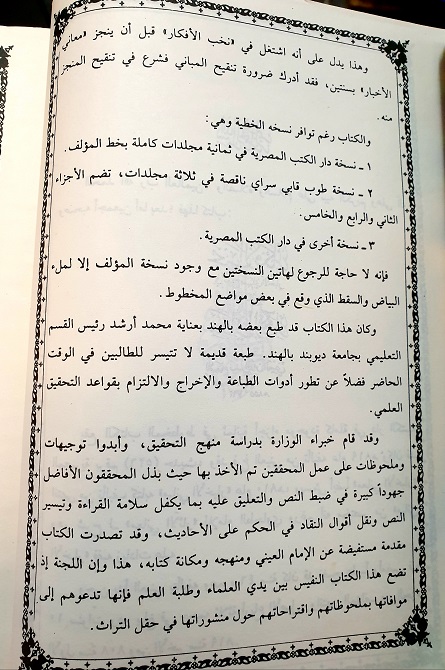 وهذا يدل على أنه اشتغل في «نخب الأفكار» قبل أن ينجز «معاني
الأخيار» بسنتين، فقد أدرك ضرورة تنقيح المباني فشرع في تنقيح المنجز
منه.
والكتاب رغم توافر نسخه الخطية وهي:
١ ـ نسخة دار الكتب المصرية في ثمانية مجلدات كاملة بخط المؤلف.
٢ ـ نسخة طوب قابي سراي ناقصة في ثلاثة مجلدات، تضم الأجزاء
الثاني والرابع والخامس.
٣ ـ نسخة أخرى في دار الكتب المصرية.
فإنه لا حاجة للرجوع لهاتين النسختين مع وجود نسخة المؤلف إلا لملء
البياض والسقط الذي وقع في بعض مواضع المخطوط.
وكان هذا الكتاب قد طبع بعضه بالهند بعناية محمد أرشد رئيس القسم
التعليمي بجامعة ديوبند بالهند. طبعة قديمة لا تتيسر للطالبين في الوقت
الحاضر فضلاً عن تطور أدوات الطباعة والإخراج والالتزام بقواعد التحقيق
العلمي.
وقد قام خبراء الوزارة بدراسة منهج التحقيق، وأبدوا توجيهات
وملحوظات على عمل المحققين تم الأخذ بها حيث بذل المحققون الأفاضل
جهوداً كبيرة في ضبط النص والتعليق عليه بما يكفل سلامة القراءة وتيسير
النص ونقل أقوال النقاد في الحكم على الأحاديث، وقد تصدرت الكتاب
مقدمة مستفيضة عن الإمام العيني ومنهجه ومكانة كتابه، هذا وإن اللجنة إذ
تضع هذا الكتاب النفيس بين يدي العلماء وطلبة العلم فإنها تدعوهم إلى
موافاتها بملحوظاتهم واقتراحاتهم حول منشوراتها في حقل التراث.